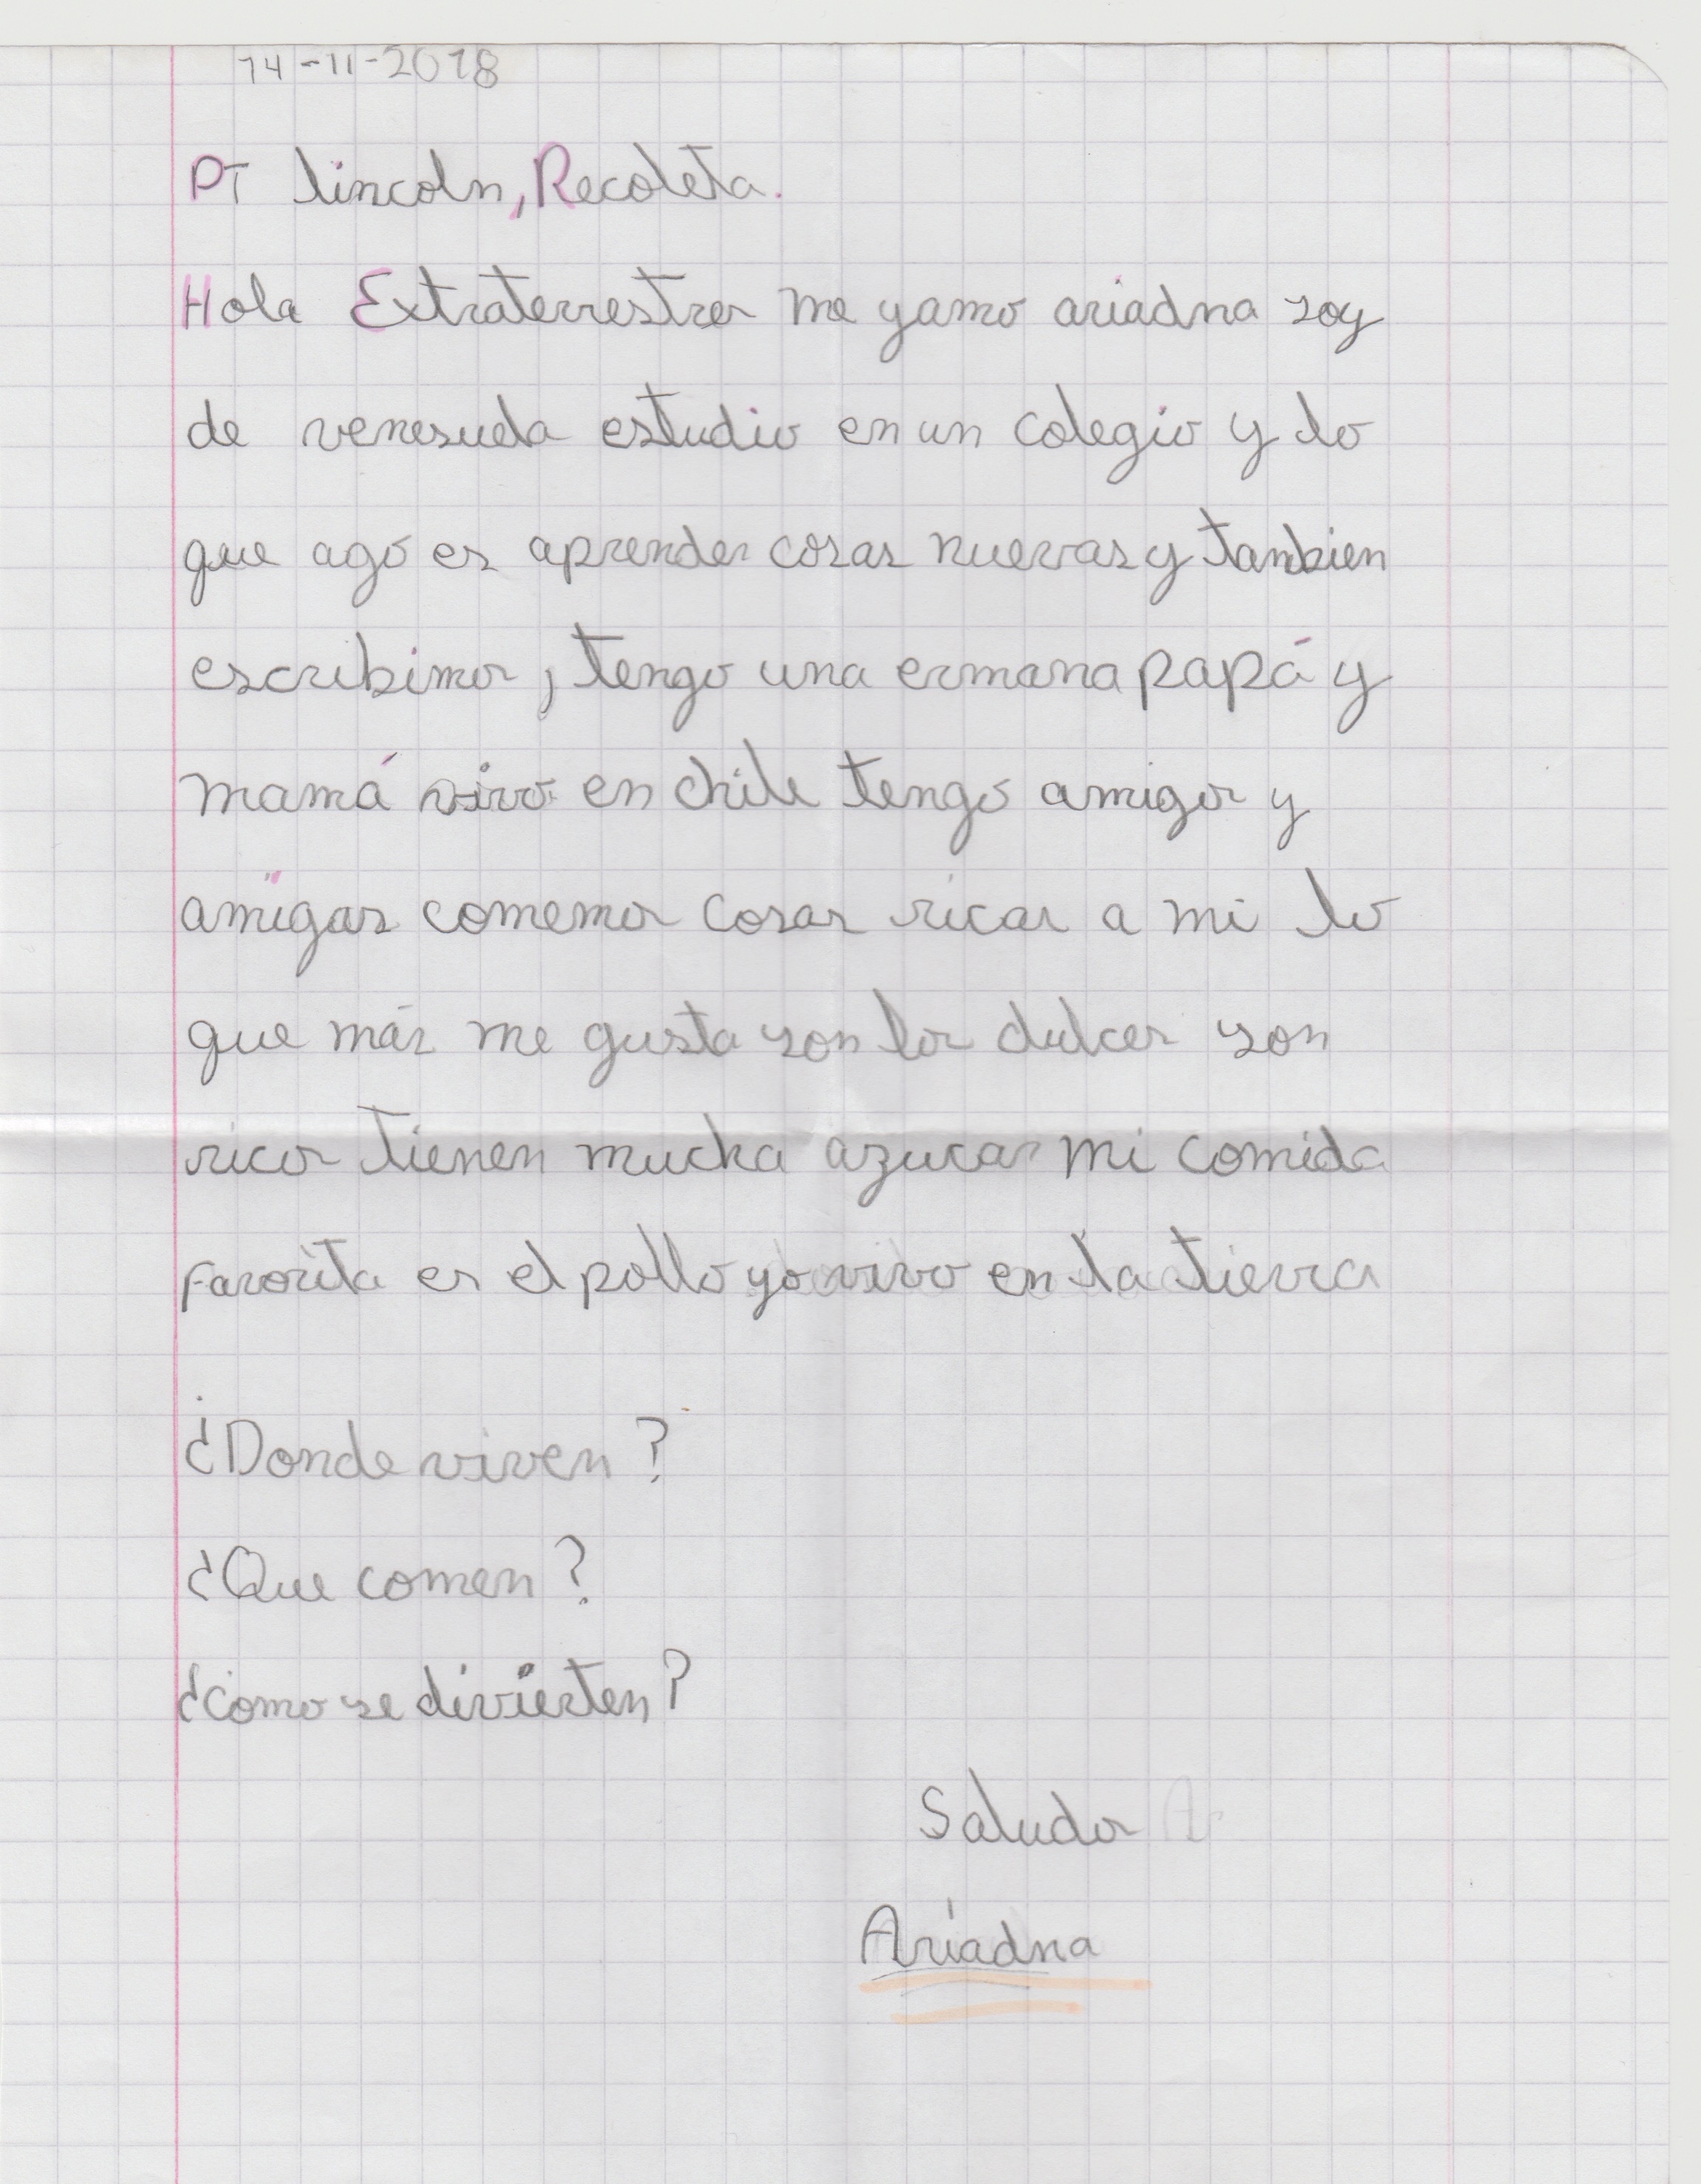 14-11-2018
PT lincoln, Recoleta.
Hola Extraterrestres me yamo ariadna soy
de venesuela estudio en un colegio y lo
que ago es aprender cosas nuevas y tanbien
escribimos, tengo una ermana papá y
mamá vivo en chile tengo amigos y
amigas comemos cosas ricas a mi lo
que más me gusta son los dulces son
ricos tienen mucha azucar mi comida
favorita es el pollo yo vivo en la tierra
¿Donde viven?
¿Que comen?
¿como se divierten?
Saludos
Ariadna